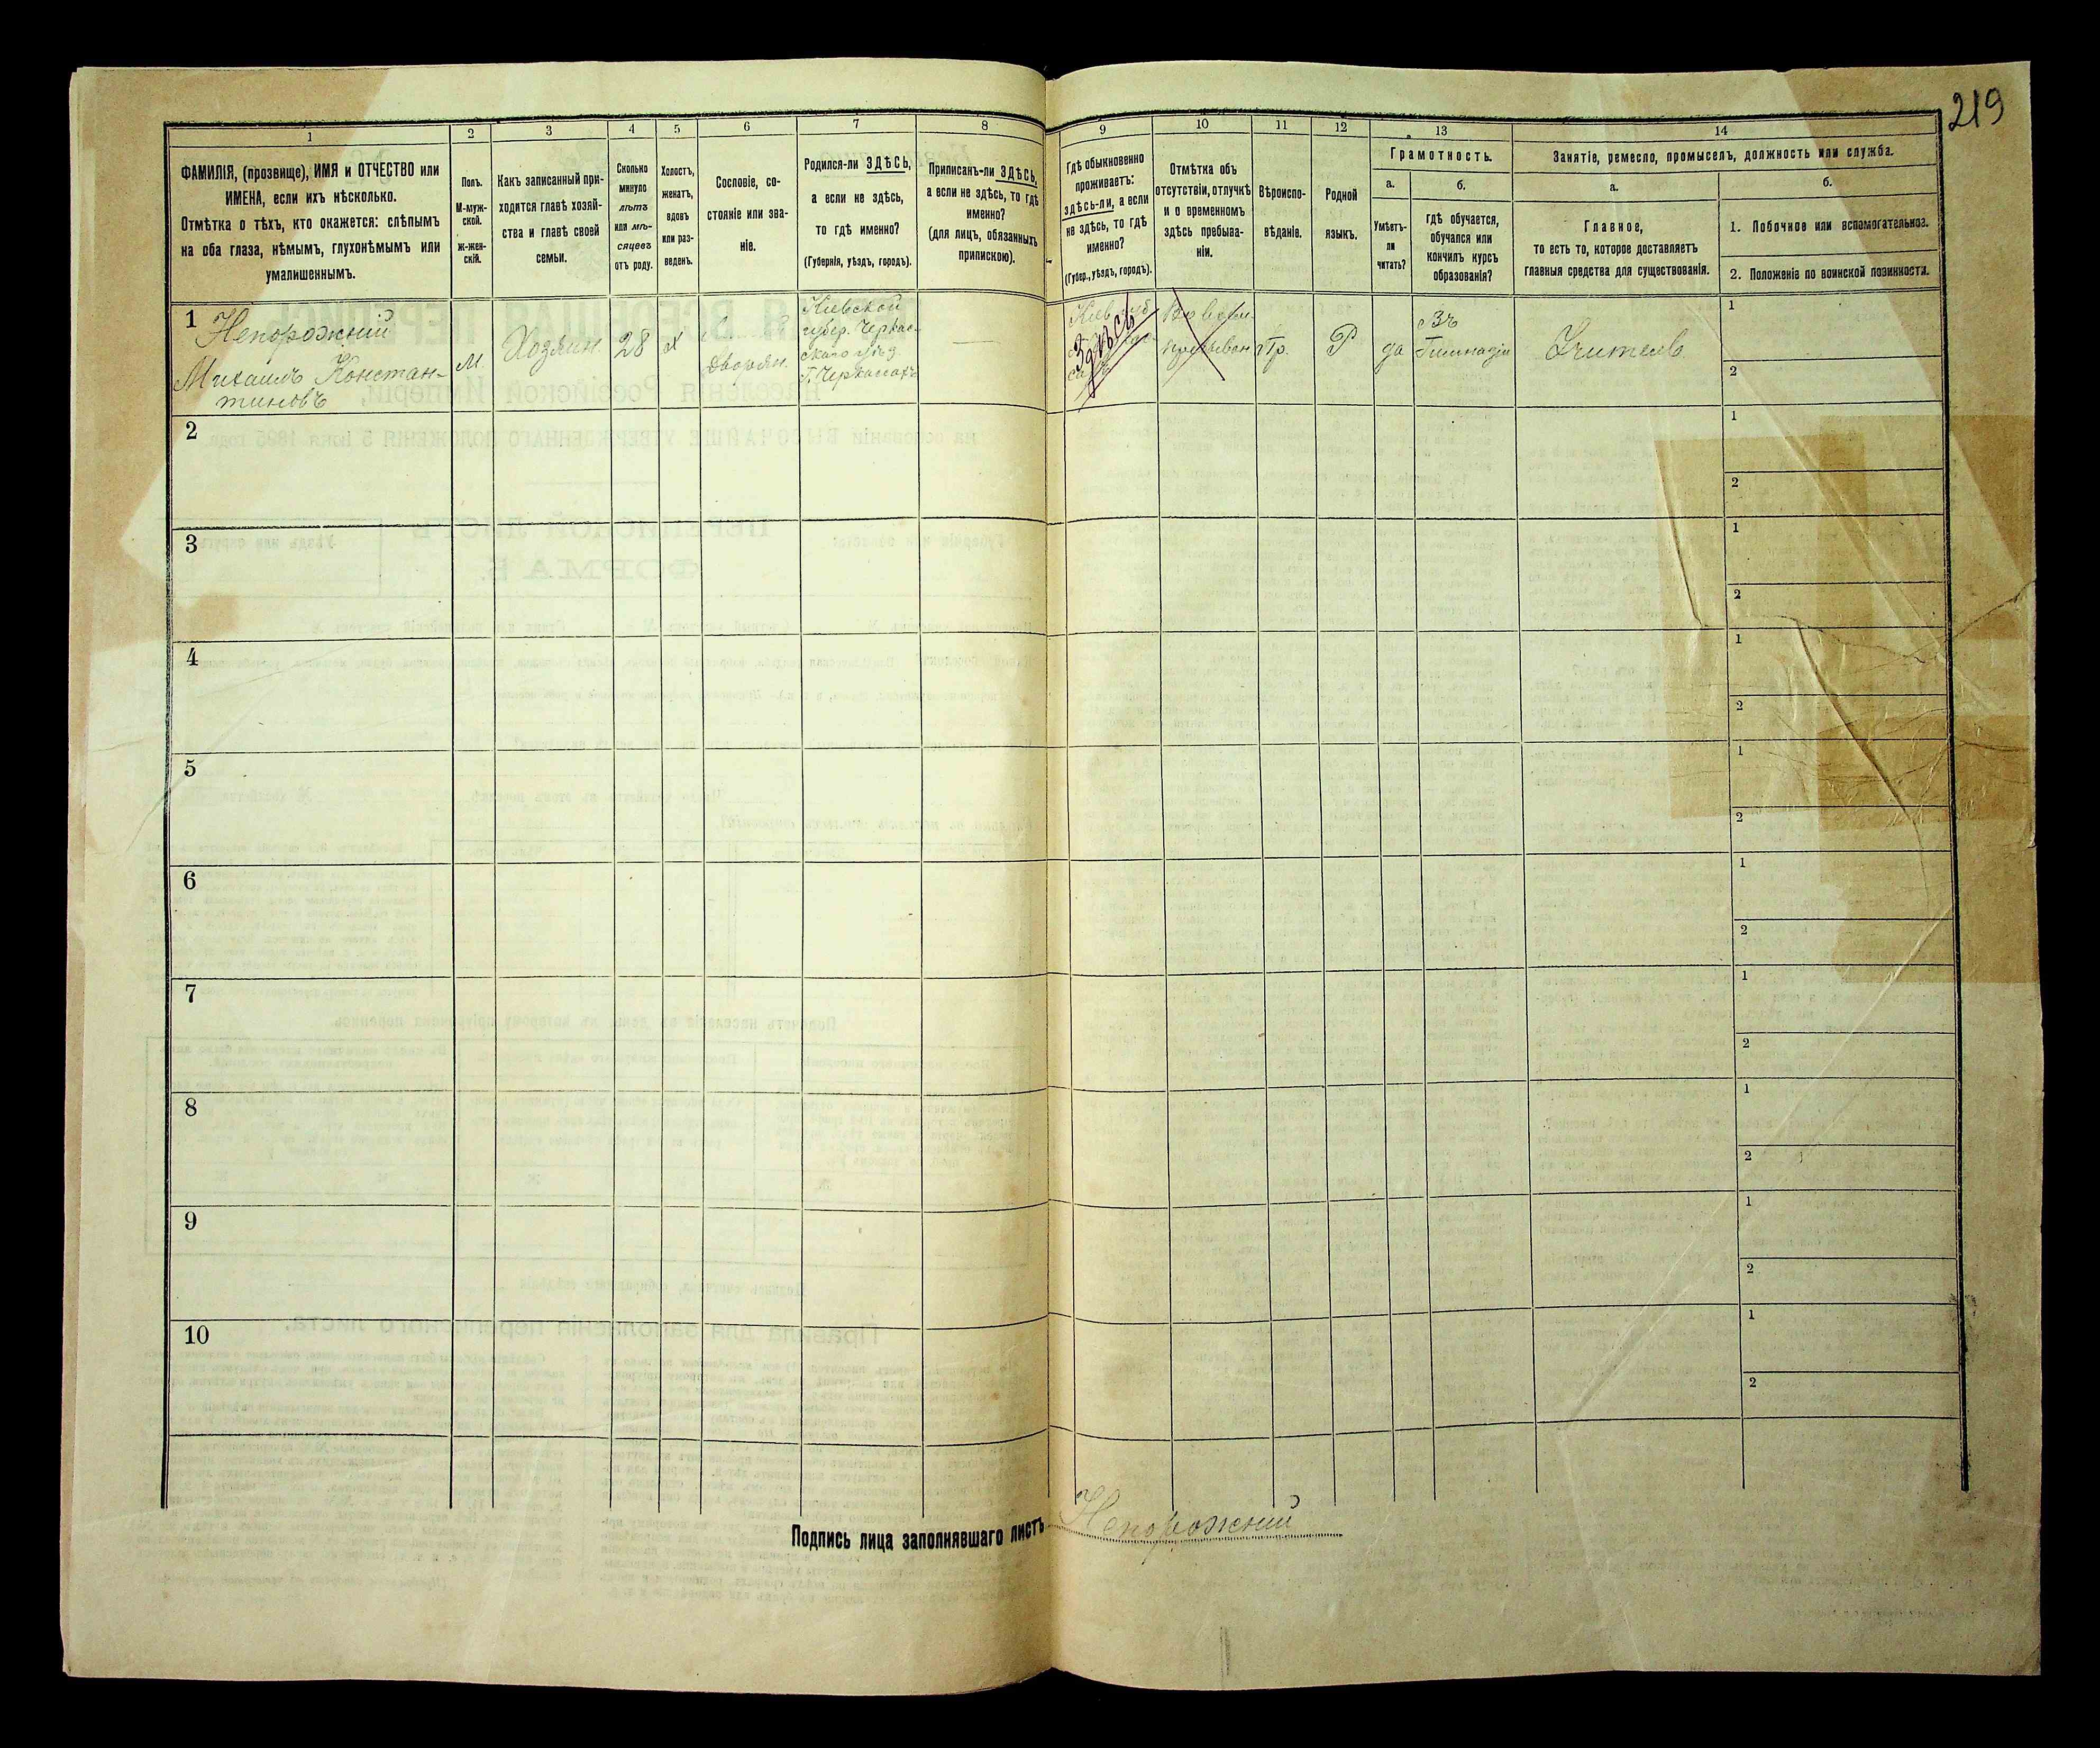 219
1
2
3
4
5
6
7
8
9
10
11
12
13
14
ФАМИЛІЯ, (прозвище), ИМЯ и ОТЧЕСТВО или
ИМЕНА, если ихъ нѣсколько.
Отмѣтка о тѣхъ, кто окажется: слѣпымъ
на оба глаза, нѣмымъ, глухонѣмымъ или
умалишеннымъ.
Полъ.
М-муж-
ской.
ж-жен-
скій.
Какъ записанный при-
ходится главѣ хозяй-
ства и главѣ своей
семьи.
Сколько
минуло
лѣтъ
или мѣ-
сяцевъ
отъ роду.
Холостъ,
женатъ,
вдовъ
или раз-
веденъ.
Сословіе, со-
стояніе или зва-
ніе.
Родился-ли ЗДѢСЬ,
а если не здѣсь,
то гдѣ именно?
(Губернія, уѣздъ, городъ).
Приписанъ-ли ЗДѢСЬ,
а если не здѣсь, то гдѣ
именно?
(для лицъ, обязанныхъ
припискою).
Гдѣ обыкновенно
проживаетъ:
здѣсь-ли, а если
не здѣсь, то гдѣ
именно?
(Губер., уѣздъ, городъ).
Отмѣтка объ
отсутствіи, отлучкѣ
и о временномъ
здѣсь пребыва-
ніи.
Вѣроиспо-
вѣданіе.
Родной
языкъ.
Грамотность.
а.
Умѣетъ-
ли
читать?
б.
гдѣ обучается,
обучался или
кончилъ курсъ
образованія?
Занятіе, ремесло, промыселъ, должность или служба.
а.
Главное,
то есть то, которое доставляетъ
главныя средства для существованія.
б.
1. Побочное или вспомогательное.
2. Положеніе по воинской повинности.
1
Непорожній
Михаилъ Констан-
тиновъ
М
Хозяин.
28
х
Дворян.
Кіевской
губер. Черкас-
скаго уѣз
г. Черкассахъ
—
Кіев. губ
Здѣсь
Пр.
Р
да
Въ
Гимназіи
Учитель
1
2
2
1
2
3
1
2
4
1
2
5
1
2
6
1
2
7
1
2
8
1
2
9
1
2
10
1
2
Подпись лица заполнявшаго листъ Непорожній